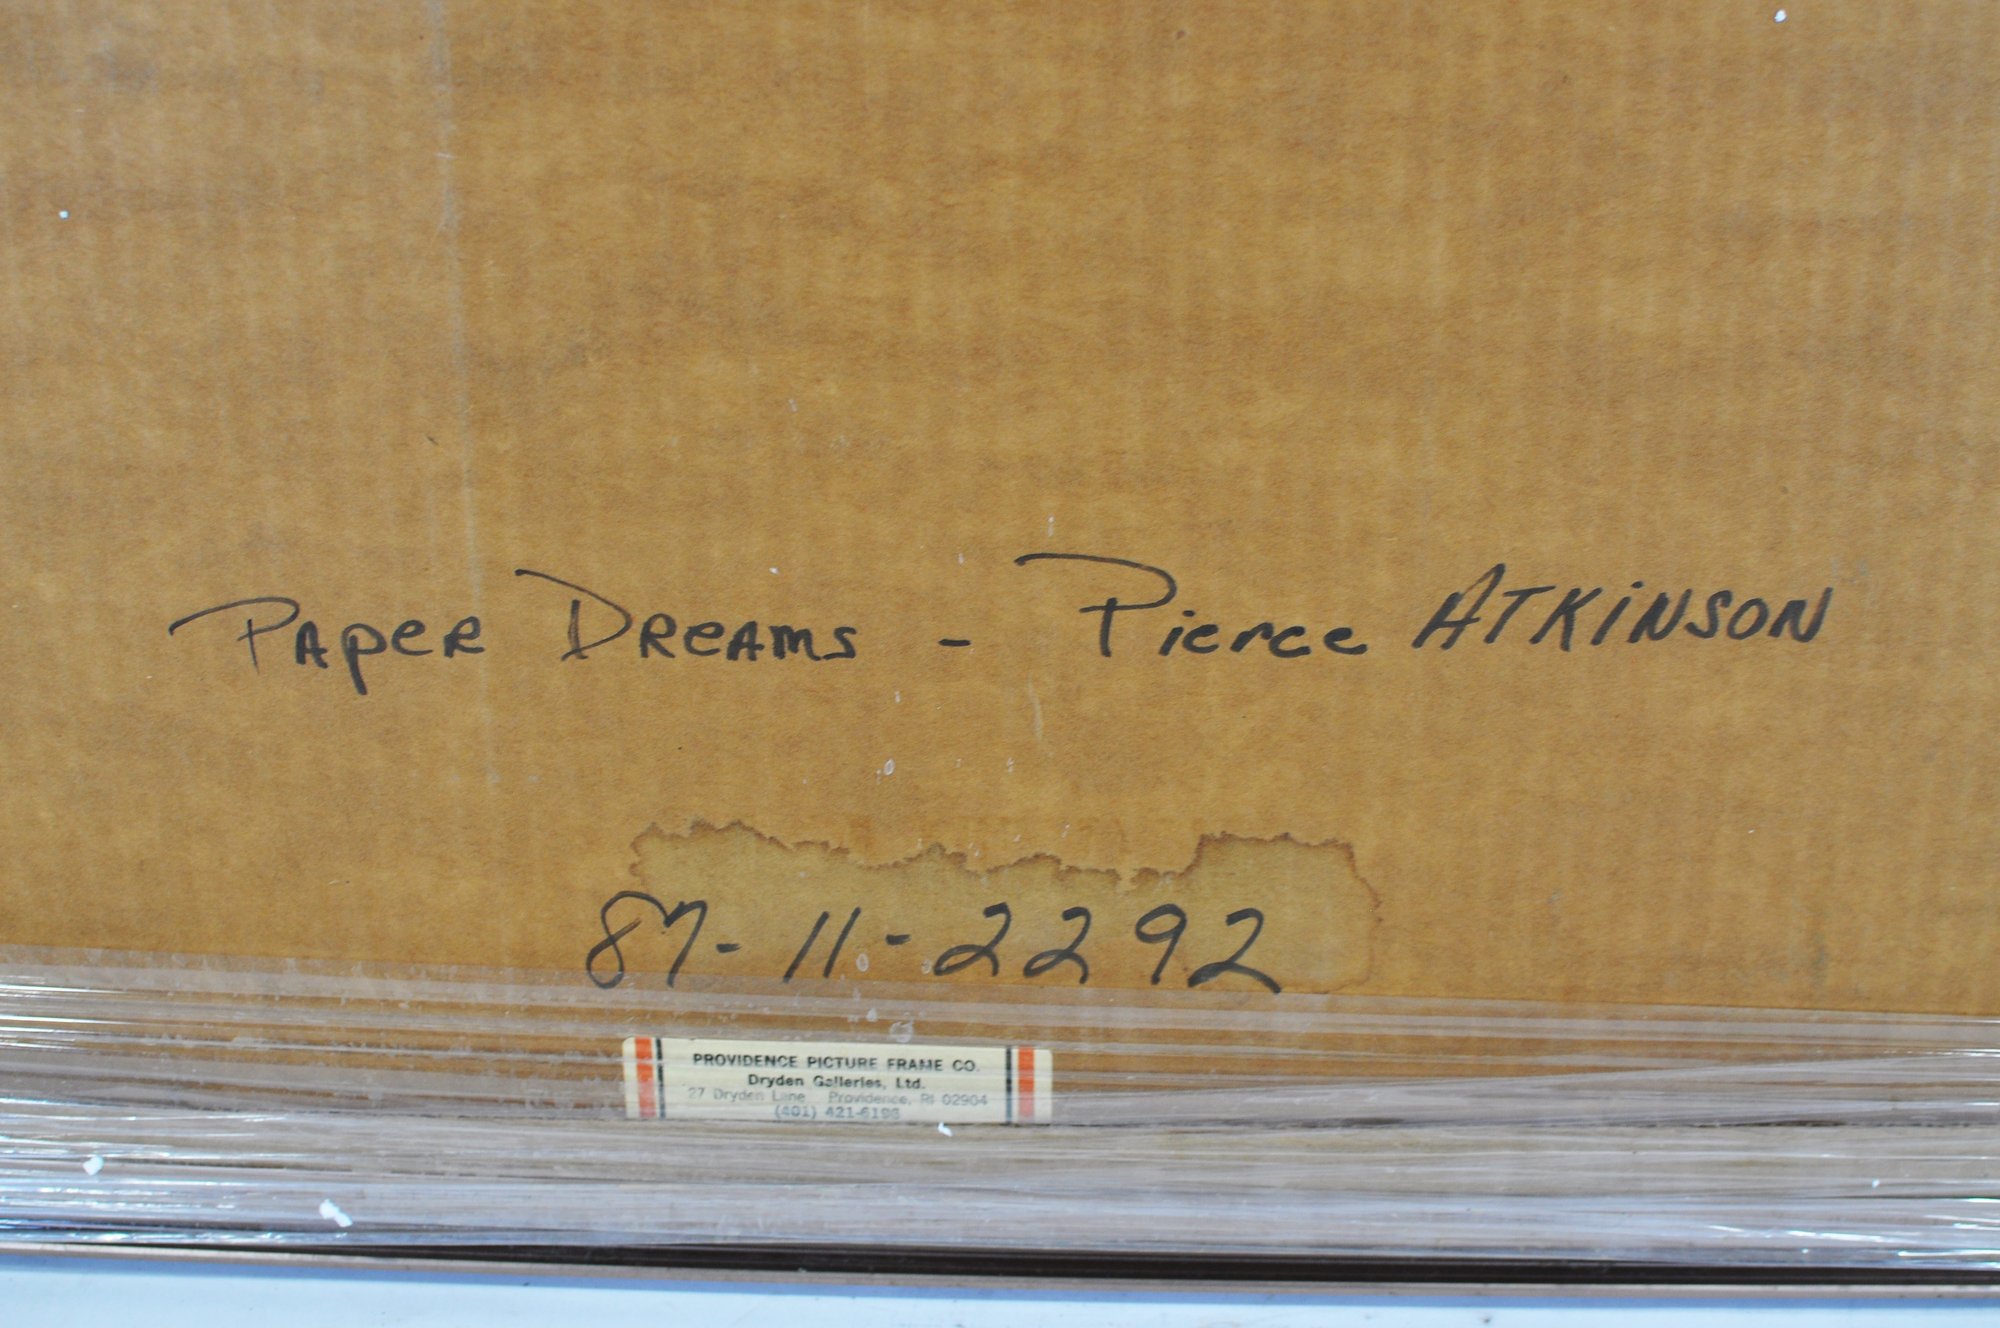 PAPER DREAMS - Pierce ATKINSON
87-11-2292
PROVIDENCE PICTURE FRAME CO.
Dryden Galleries, Ltd.
27 Dryden Lane Providence, RI 02904
(401) 421-6196